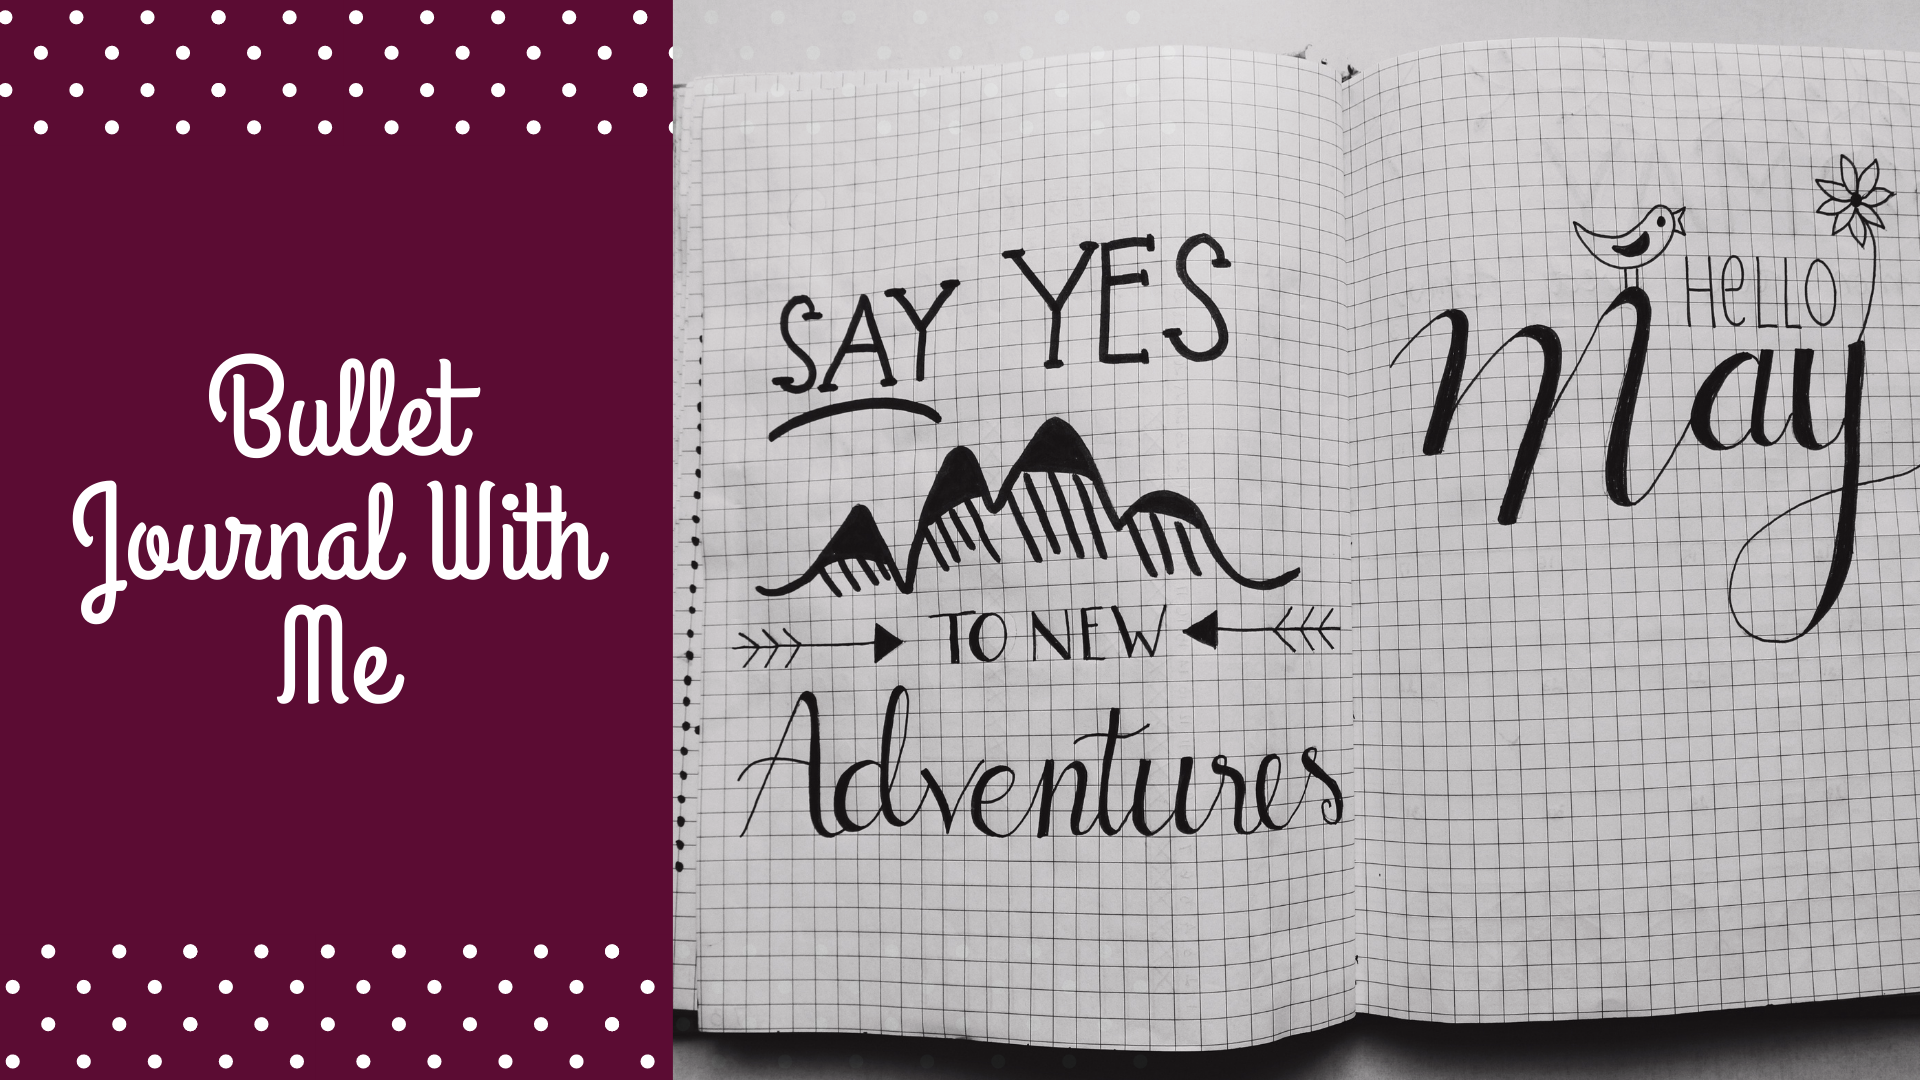 Bullet
Journal With
Me
SAY YES
TO NEW
Adventures
HELLO
May